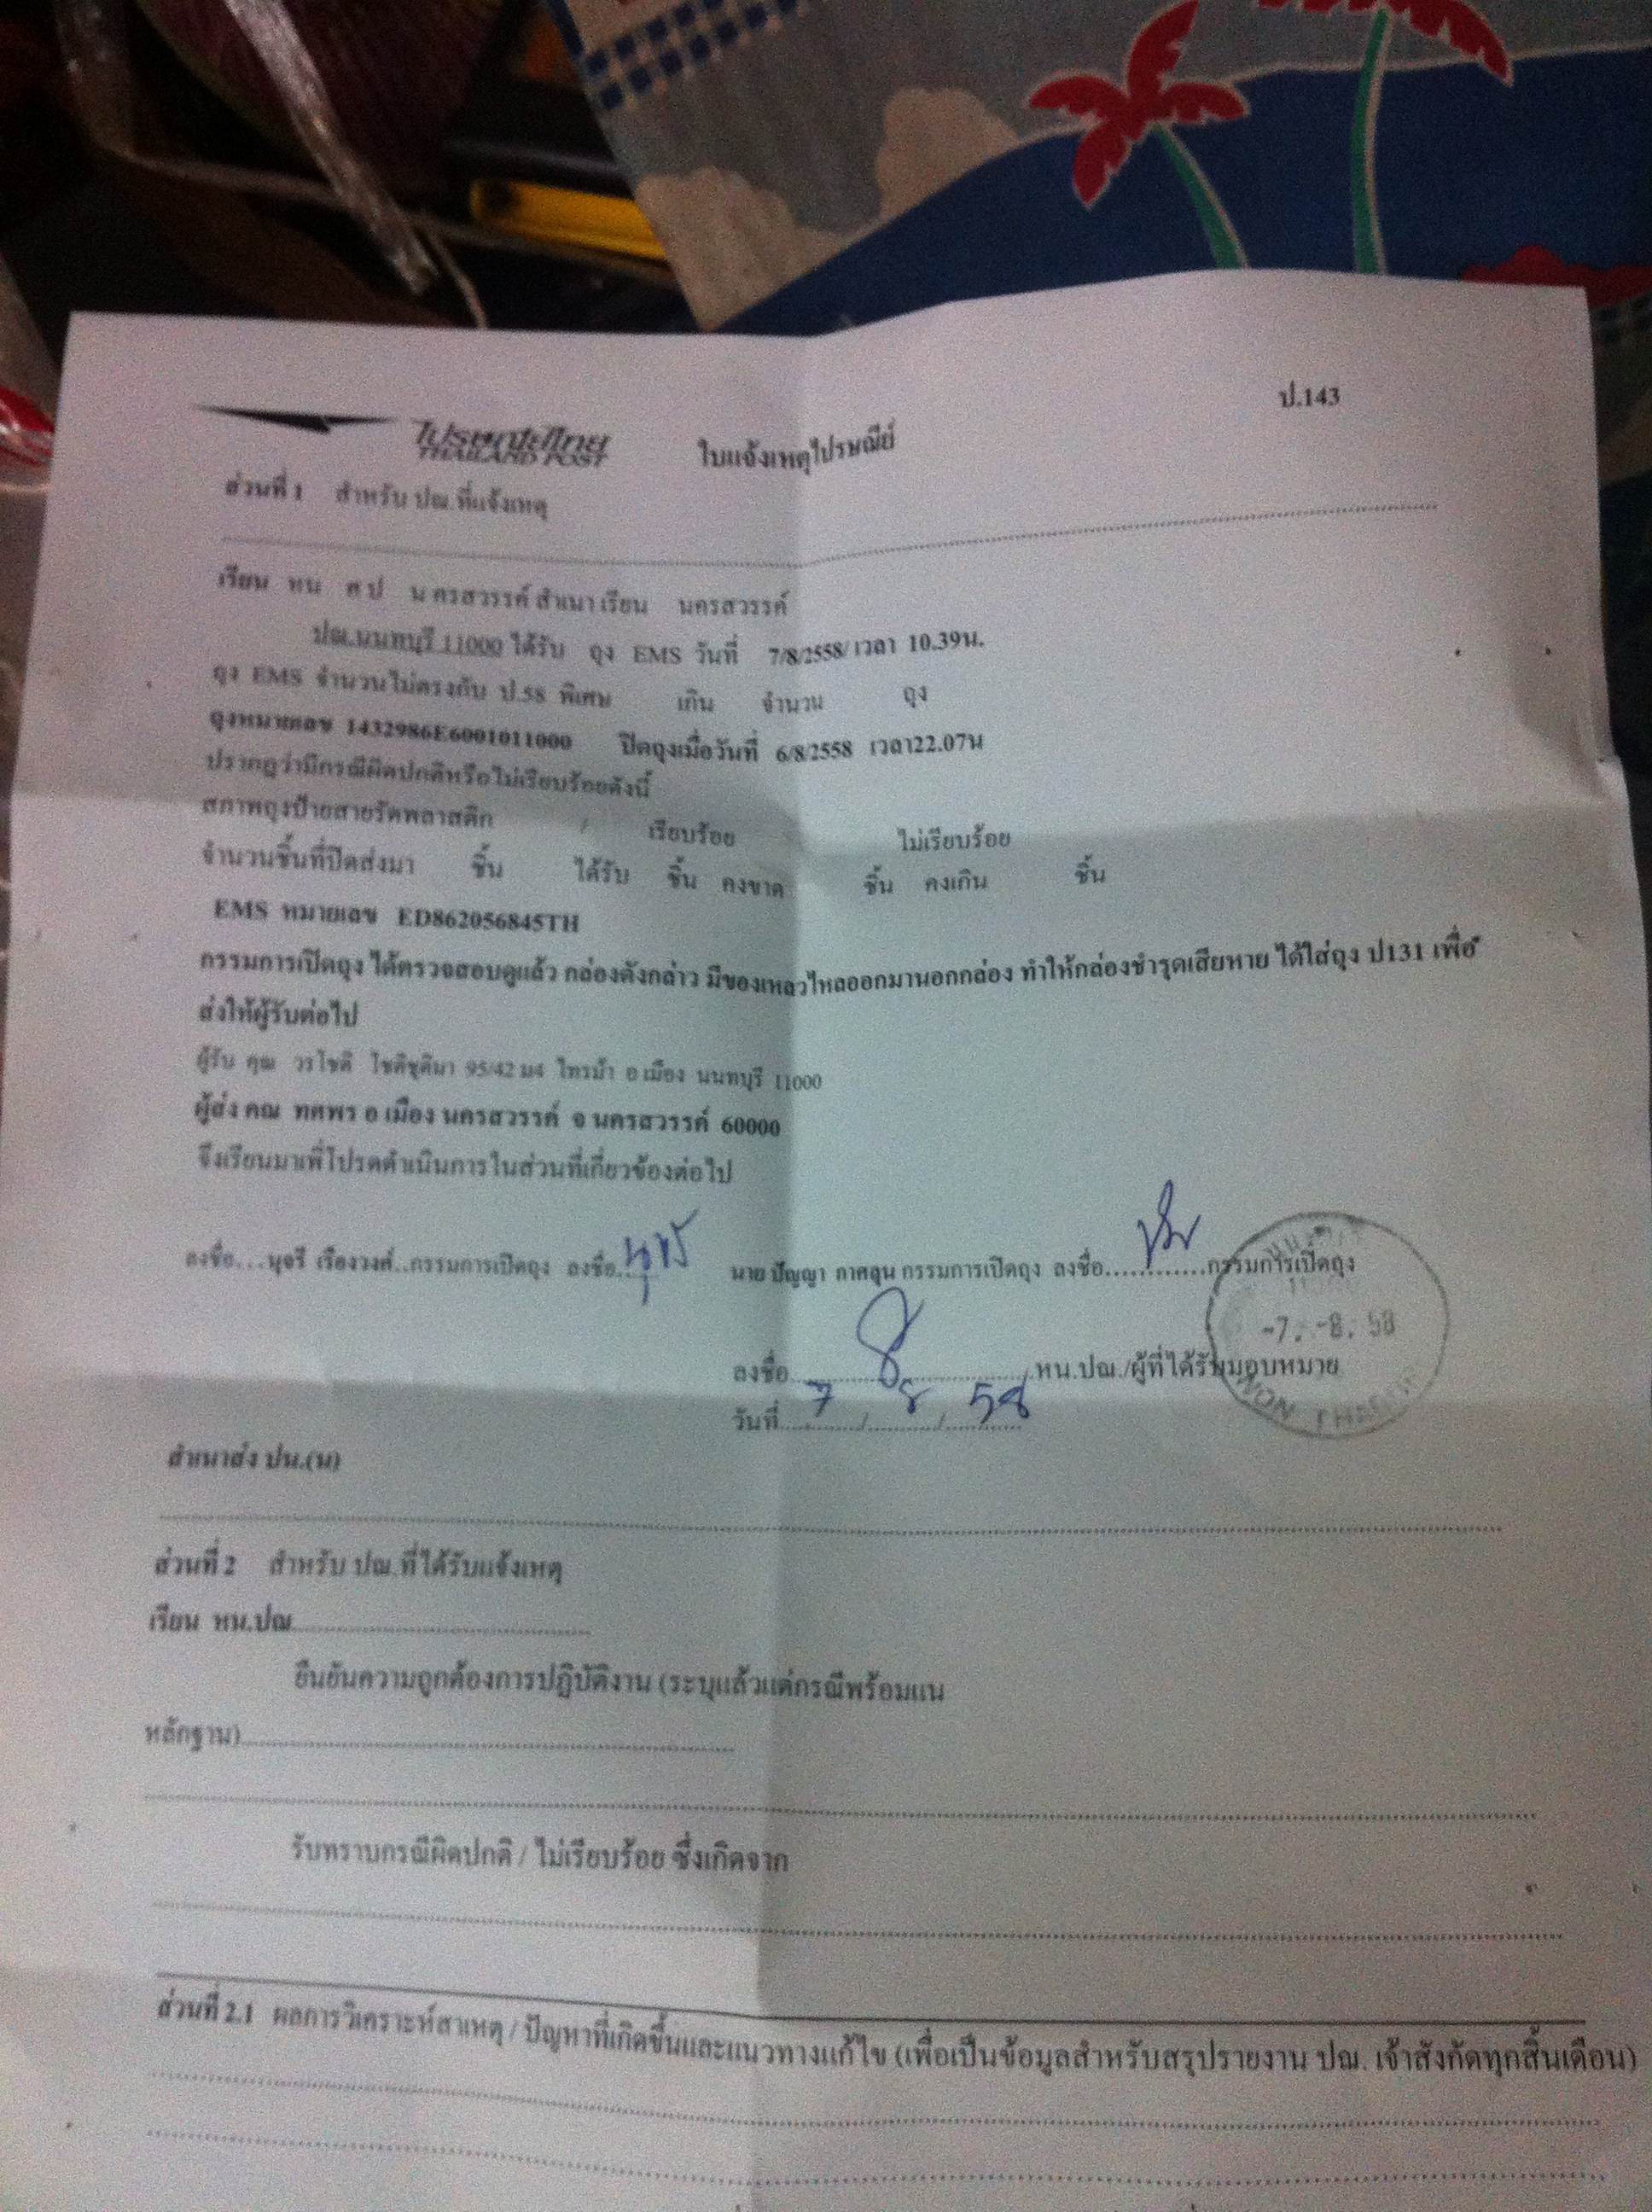 ป.143
ไปรษณีย์ไทย
THAILAND POST
ใบแจ้งเหตุไปรษณีย์
ส่วนที่ 1 สำหรับ ปณ.ที่แจ้งเหตุ
เรียน หน ศป นครสวรรค์ สำเนาเรียน นครสวรรค์
ปณ.นนทบุรี 11000 ได้รับ ถุง EMS วันที่ 7/8/2558/ เวลา 10.39น.
ถุง EMS จำนวนไม่ตรงกับ ป.58 พิเศษ เกิน จำนวน ถุง
ถุงหมายเลข 1432986E6001011000 ปิดถุงเมื่อวันที่ 6/8/2558 เวลา22.07น
ปรากฎว่ามีกรณีผิดปกติหรือไม่เรียบร้อยดังนี้
สภาพถุงป้ายสายรัดพลาสติก / เรียบร้อย ไม่เรียบร้อย
จำนวนชิ้นที่ปิดส่งมา ชิ้น ได้รับ ชิ้น คงขาด ชิ้น คงเกิน ชิ้น
EMS หมายเลข ED862056845TH
กรรมการเปิดถุง ได้ตรวจสอบดูแล้ว กล่องดังกล่าว มีของเหลวไหลออกมานอกกล่อง ทำให้กล่องชำรุดเสียหาย ได้ใส่ถุง ป131 เพื่อ
ส่งให้ผู้รับต่อไป
ผู้รับ คุณ วรโชติ โชติชุติมา 95/42 ม4 ไทรม้า อ เมือง นนทบุรี 11000
ผู้ส่ง คณ ทศพร อ เมือง นครสวรรค์ จ นครสวรรค์ 60000
จึงเรียนมาเพื่โปรดดำเนินการในส่วนที่เกี่ยวข้องต่อไป
ลงชื่อ...นุจรี เรืองวงศ์..กรรมการเปิดถุง ลงชื่อ..... นาย ปัญญา กาศลุน กรรมการเปิดถุง ลงชื่อ............กรรมการเปิดถุง
-7. -8. 58
ลงชื่อ...................................หน.ปณ./ผู้ที่ได้รับมอบหมาย
NON THABURI
วันที่ 7 / 8 / 58
สำเนาส่ง ปน.(น)
ส่วนที่ 2 สำหรับ ปณ.ที่ได้รับแจ้งเหตุ
เรียน หน.ปณ..............................................
ยืนยันความถูกต้องการปฏิบัติงาน (ระบุแล้วแต่กรณีพร้อมแน
หลักฐาน)...........................................................................
รับทราบกรณีผิดปกติ / ไม่เรียบร้อย ซึ่งเกิดจาก
ส่วนที่ 2.1 ผลการวิเคราะห์สาเหตุ / ปัญหาที่เกิดขึ้นและแนวทางแก้ไข (เพื่อเป็นข้อมูลสำหรับสรุปรายงาน ปณ. เจ้าสังกัดทุกสิ้นเดือน)